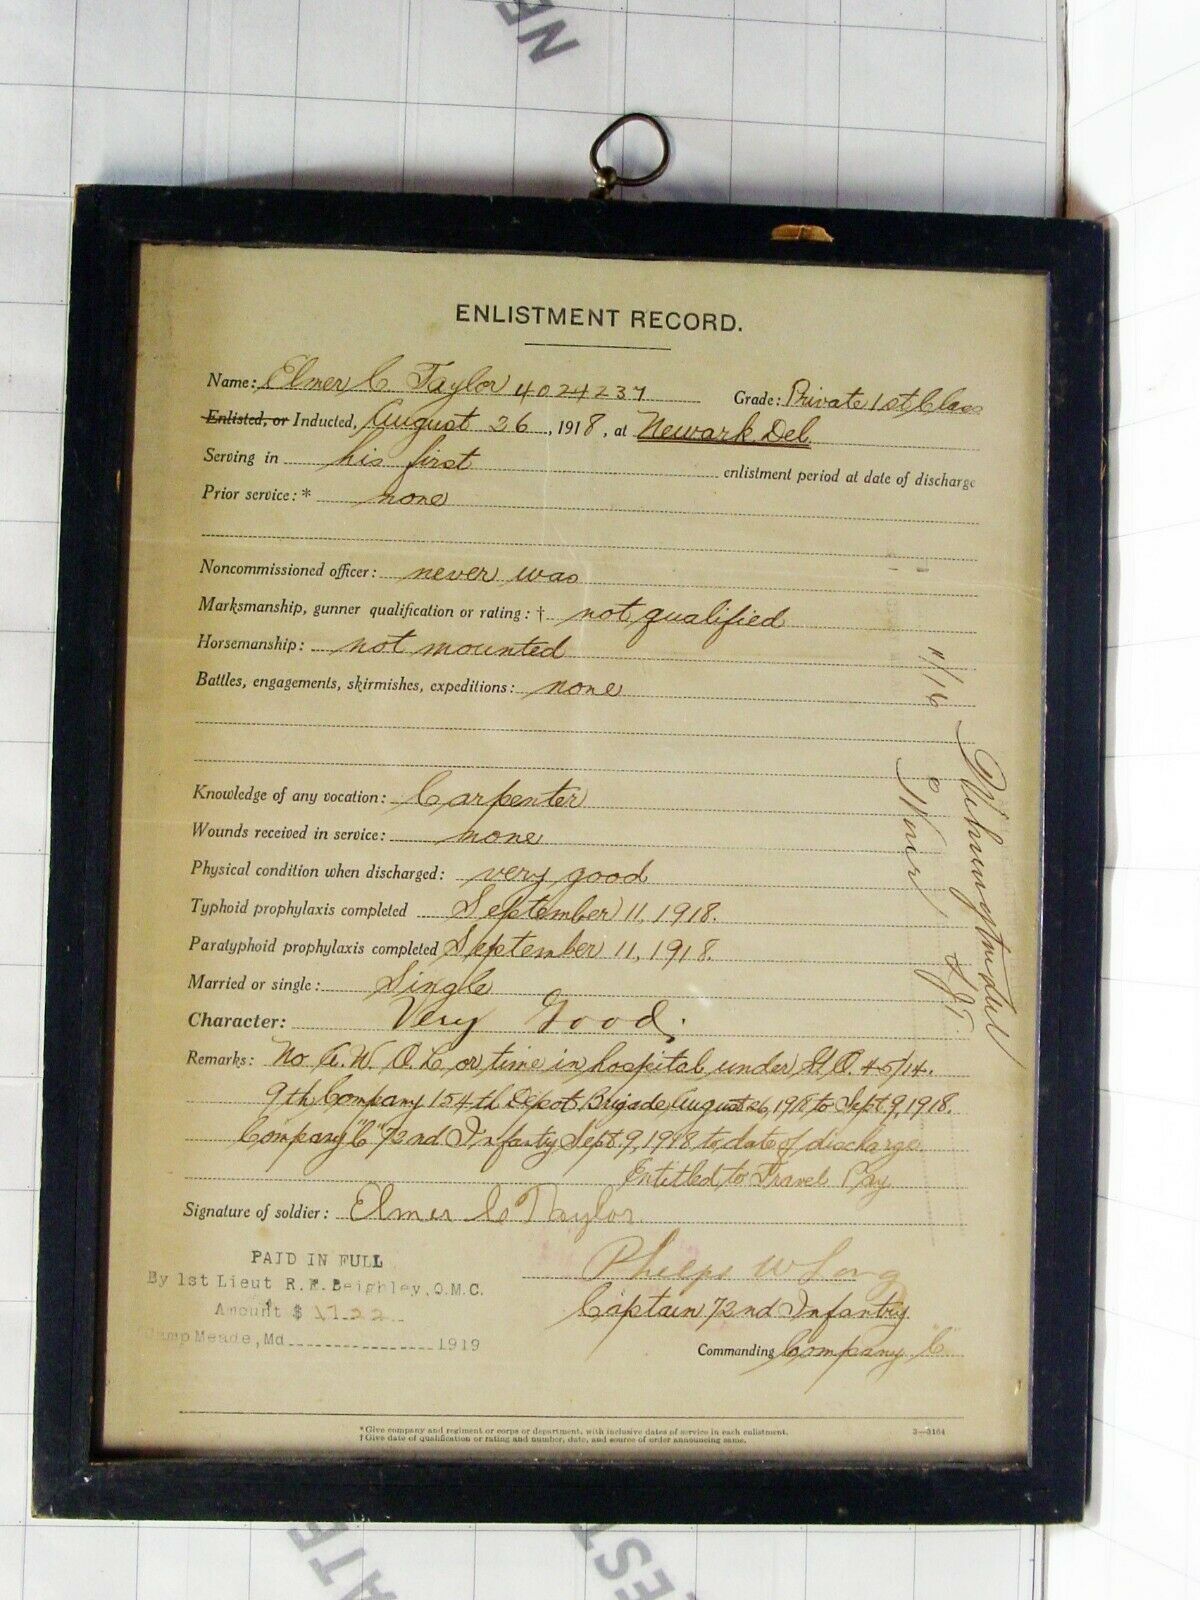 NE
ENLISTMENT RECORD.
Name: Elmer C. Taylor 4024237 Grade: Private 1st Class
Enlisted, or Inducted, August 26, 1918, at Newark Del.
Serving in his first enlistment period at date of discharge
Prior service: * none
Noncommissioned officer: never was
Marksmanship, gunner qualification or rating: † not qualified
Horsemanship: not mounted
Battles, engagements, skirmishes, expeditions: none
Knowledge of any vocation: Carpenter
Wounds received in service: none
Physical condition when discharged: very good
Typhoid prophylaxis completed September 11, 1918.
Paratyphoid prophylaxis completed September 11, 1918.
Married or single: Single
Character: Very Good.
Remarks: No A.W.O.L. or time in hospital under G.O. 45/14.
9th Company 154th Depot Brigade, August 26, 1918 to Sept. 9, 1918.
Company "C" 72nd Infantry Sept. 9, 1918 to date of discharge.
Entitled to Travel Pay
Signature of soldier: Elmer C Taylor
PAID IN FULL
By 1st Lieut R.E. Beighley, Q.M.C.
Amount $
Camp Meade, Md 1919
Phelps W Long
Captain 72nd Infantry
Commanding Company "C"
* Give company and regiment or corps or department, with inclusive dates of service in each enlistment.
† Give date of qualification or rating and number, date, and source of order announcing same.
3—3164